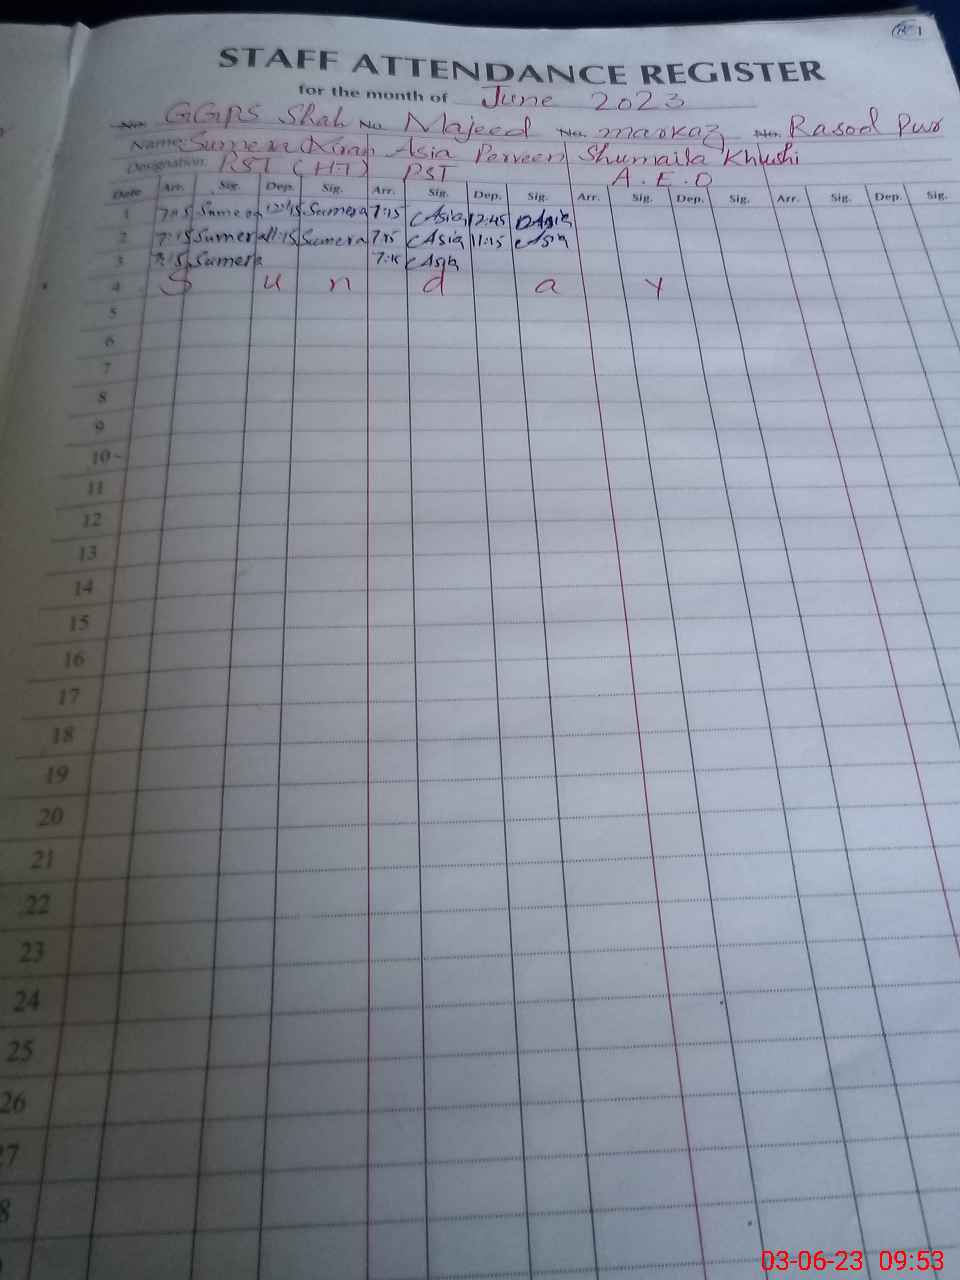 1
STAFF ATTENDANCE REGISTER
for the month of June 2023
GGPS Shah No. Majeed No. markaz No. Rasool Pur
Name: Sumera Kiran Asia Perveen Shumaila Khushi
Designation. PST (H.T) PST A.E.O
Date Arr. Sig. Dep. Sig. Arr. Sig. Dep. Sig. Arr. Sig. Dep. Sig. Arr. Sig. Dep. Sig.
1 7:15 Sumera Sumera 7:15 Asia 12:45 Asia
2 7:15 Sumera 11:15 Sumera 7:15 Asia 11:15 Asia
3 7:15 Sumera 7:15 Asia
4 S u n d a y
5
6
7
8
9
10
11
12
13
14
15
16
17
18
19
20
21
22
23
24
25
26
7
8
03-06-23 09:53